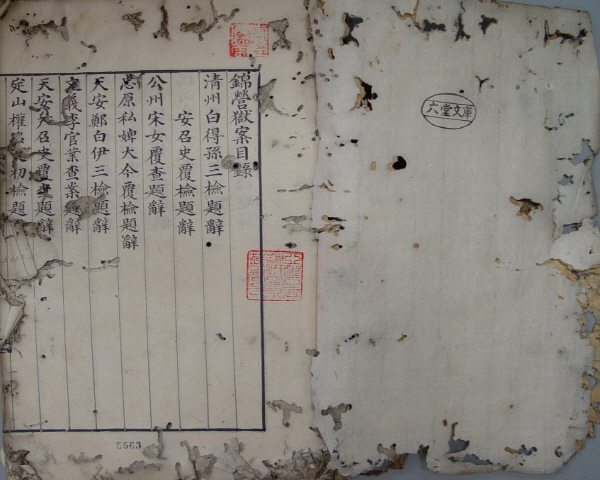 六堂文庫
錦營獄案目錄
清州白得孫三檢題辭
安召史覆檢題辭
公州宋女覆查題辭
忠原私婢大今覆檢題辭
天安鄭白伊三檢題辭
義李官業查案題辭
天安召史覆題辭
定山權召史初檢題
5563